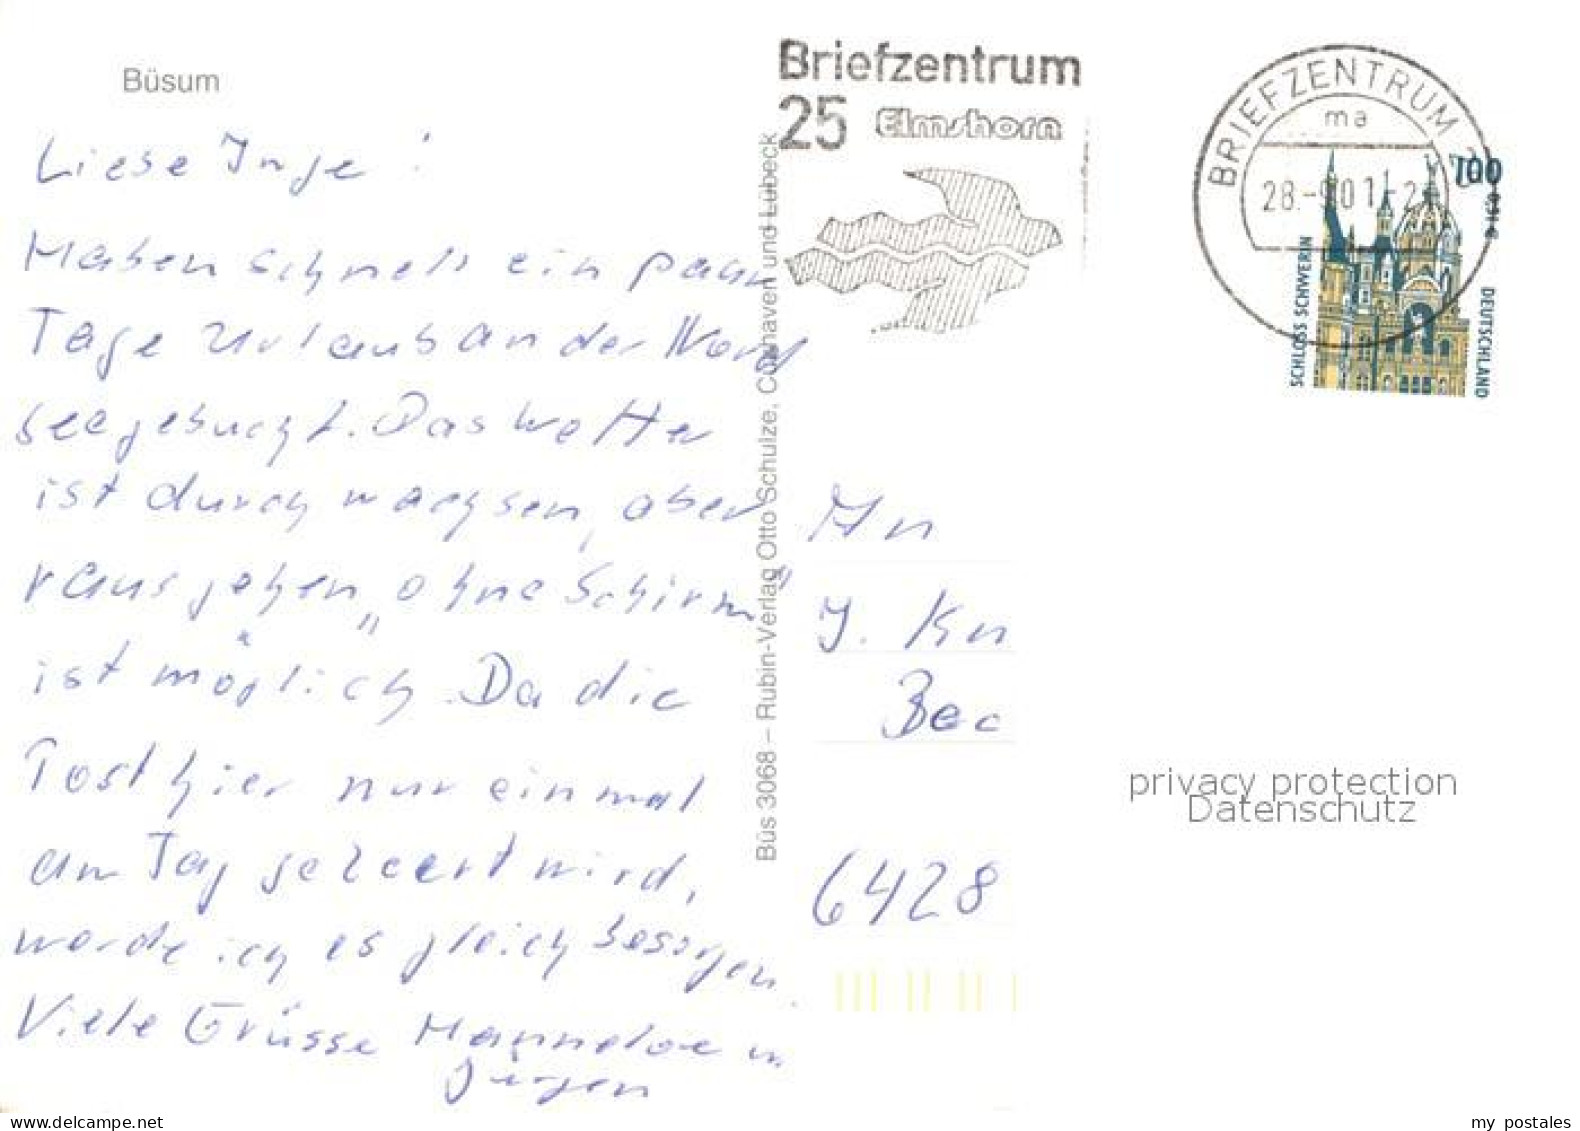 Büsum
Liebe Inge!
Haben schnell ein paar
Tage Urlaub an der Nord
seegebucht. Das Wetter
ist durchwachsen, aber
rausgehen „ohne Schirm"
ist möglich. Da die
Post hier nur einmal
am Tag geleert wird,
werde ich es gleich besorgen.
Viele Grüsse Hannelore u.
Jürgen
Büs 3068 – Rubin-Verlag Otto Schulze, Cuxhaven und Lübeck
Briefzentrum
25 Elmshorn
BRIEFZENTRUM
ma
28.-9.01-21
100
0,51 €
SCHLOSS SCHWERIN
DEUTSCHLAND
An
I. Kn
Bec
6428
privacy protection
Datenschutz
www.delcampe.net
my postales